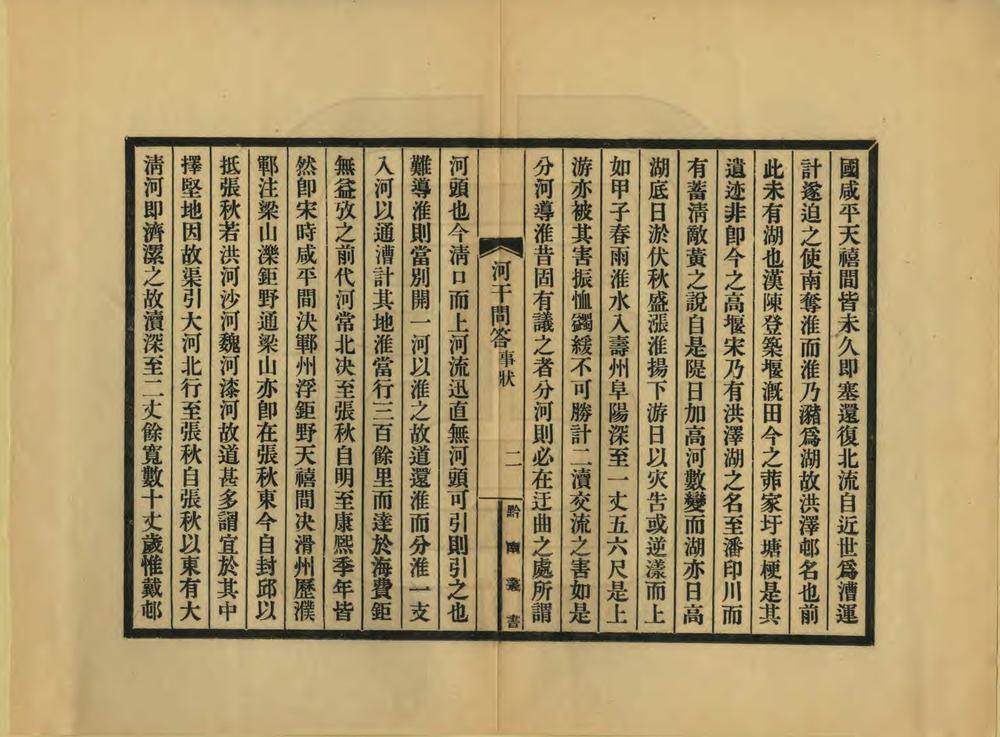 國咸平天禧間皆未久即塞還復北流自近世爲漕運
計遂迫之使南奪淮而淮乃瀦爲湖故洪澤邨名也前
此未有湖也漢陳登築堰漑田今之茆家圩塘梗是其
遺迹非卽今之高堰宋乃有洪澤湖之名至潘印川而
有蓄淸敵黃之說自是隄日加高河數變而湖亦日高
湖底日淤伏秋盛漲淮揚下游日以灾告或逆漾而上
如甲子春雨淮水入壽州阜陽深至一丈五六尺是上
游亦被其害振恤蠲緩不可勝計二瀆交流之害如是
分河導淮昔固有議之者分河則必在迂曲之處所謂
河干問答 事狀
二
黔南叢書
河頭也今淸口而上河流迅直無河頭可引則引之也
難導淮則當別開一河以淮之故道還淮而分淮一支
入河以通漕計其地淮當行三百餘里而達於海費鉅
無益攷之前代河常北決至張秋自明至康熙季年皆
然卽宋時咸平間決鄆州浮鉅野天禧間決滑州歷濮
鄆注梁山濼鉅野通梁山亦卽在張秋東今自封邱以
抵張秋若洪河沙河魏河漆河故道甚多謂宜於其中
擇堅地因故渠引大河北行至張秋自張秋以東有大
淸河即濟漯之故瀆深至二丈餘寬數十丈歲惟戴邨